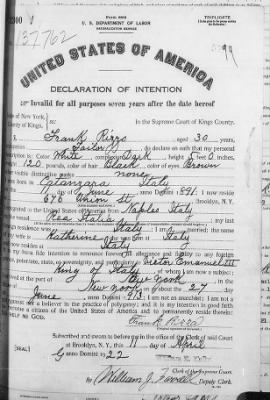 Form 2202
U. S. DEPARTMENT OF LABOR
NATURALIZATION SERVICE
TRIPLICATE
137762
UNITED STATES OF AMERICA
DECLARATION OF INTENTION
Invalid for all purposes seven years after the date hereof
of New York,
County of Kings,
In the Supreme Court of Kings County.
Frank Rizzo, aged 30 years,
occupation Tailor, do declare on oath that my personal
description is: Color White, complexion Dark, height 5 feet 2 inches,
120 pounds, color of hair Black, color of eyes Brown
visible distinctive marks none
born in Catanzara Italy
day of June, anno Domini 1891; I now reside
at 675 Union St, Brooklyn, N.Y.
emigrated to the United States of America from Naples Italy
Re Italia; my last
foreign residence was Italy; I am married; the name
wife is Katherine; she was born in Italy
resides at Italy
my bona fide intention to renounce forever all allegiance and fidelity to any foreign
prince, potentate, state, or sovereignty, and particularly to Victor Emanuel III
King of Italy, of whom I am now a subject;
arrived at the port of New York, in the
New York, on or about the 27 day
June, anno Domini 1913; I am not an anarchist; I am not a
nor a believer in the practice of polygamy; and it is my intention in good faith
to become a citizen of the United States of America and to permanently reside therein:
HELP ME GOD.
Frank Rizzo
Subscribed and sworn to before me in the office of the Clerk of said Court
[SEAL] at Brooklyn, N.Y., this 11 day of April
anno Domini 1922
Clerk of the Supreme Court.
By William J. Farrell, Deputy Clerk.